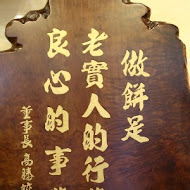 傲餅足
老實人的行
良心的事
董事長 高勝